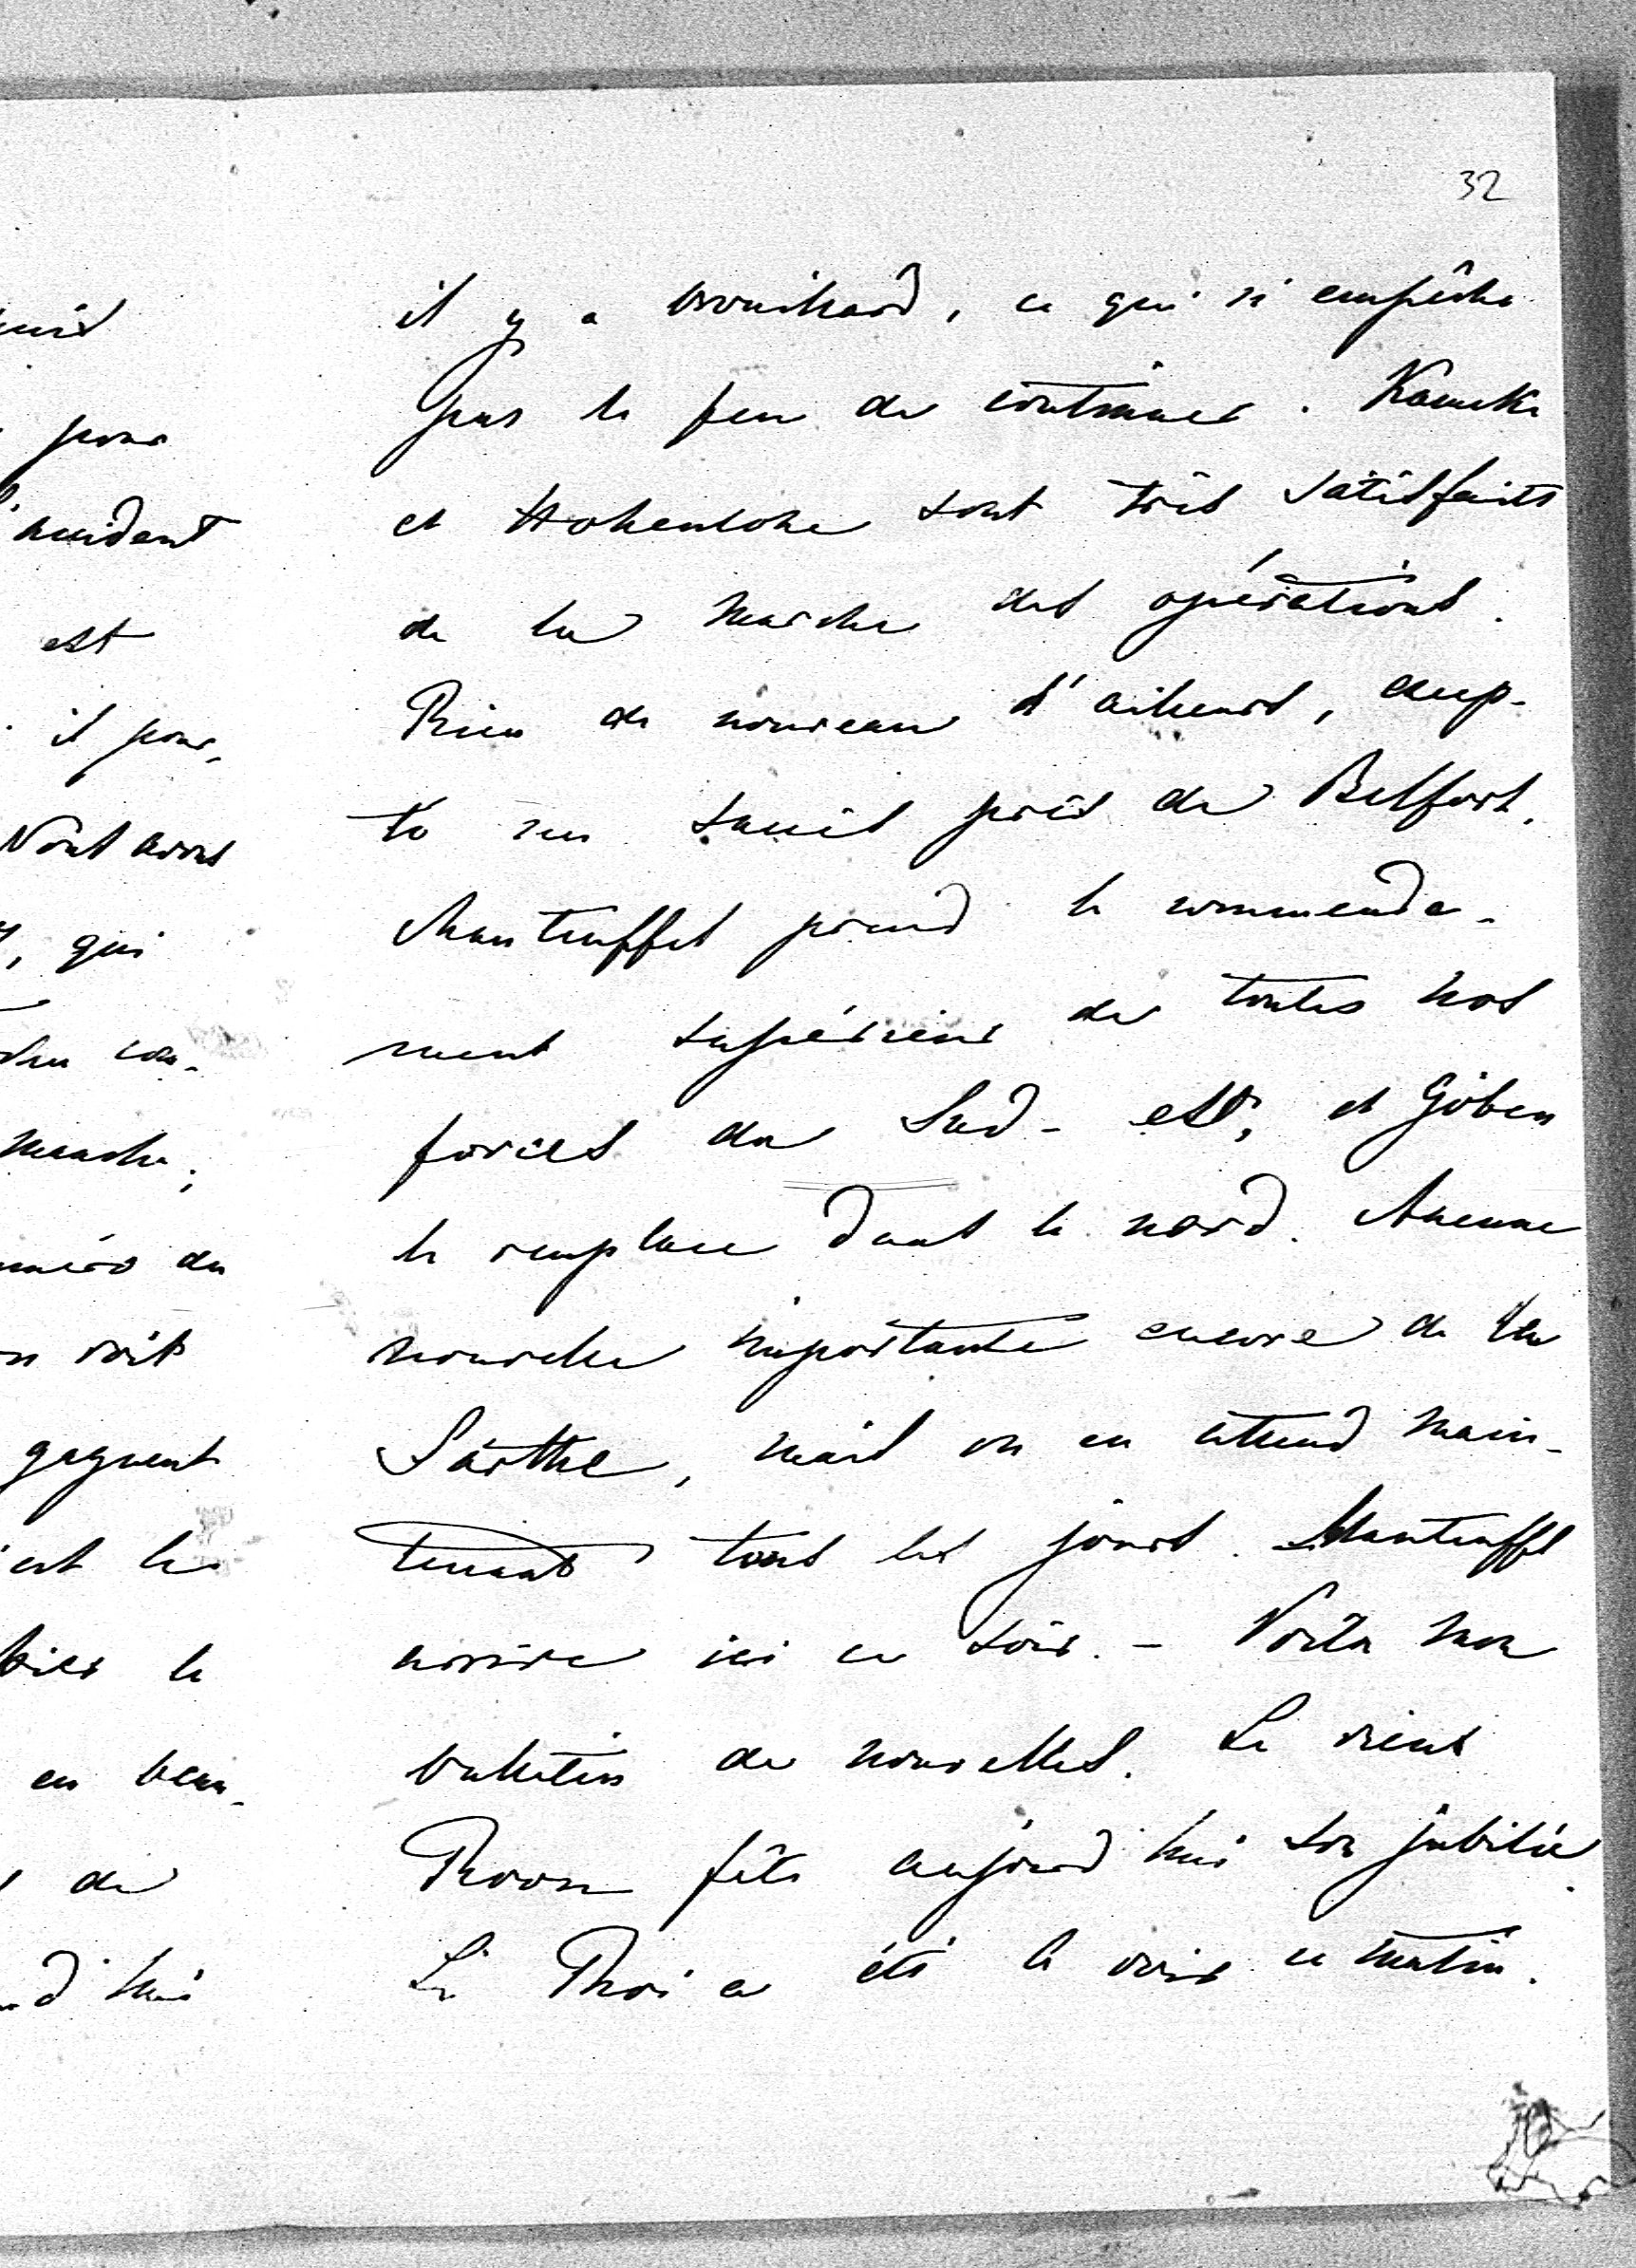 32
il y a brouillard, ce qui n'empêche
pas le feu de continuer. Kameke
et Hohenlohe sont très satisfaits
de la marche des opérations.
Rien de nouveau d'ailleurs, excep-
té un succès près de Belfort.
Manteuffel prend le commende-
ment supérieur de toutes nos
forces du Sud-est, et Göben
le remplace dans le nord. Aucune
nouvelle importante encore de la
Sarthe, mais on en attend main-
tenant tous les jours. Manteuffel
arrive ici ce soir. – Voilà mon
bulletin de nouvelles. Le vieux
Roon fête aujourd'hui son jubilée.
Le Roi a été le voir ce matin.
pour
l'accident
est
il pour-
Nous avons
, qui
con-
manche;
numéro du
voit
gagnent
est le
le
en beau-
de